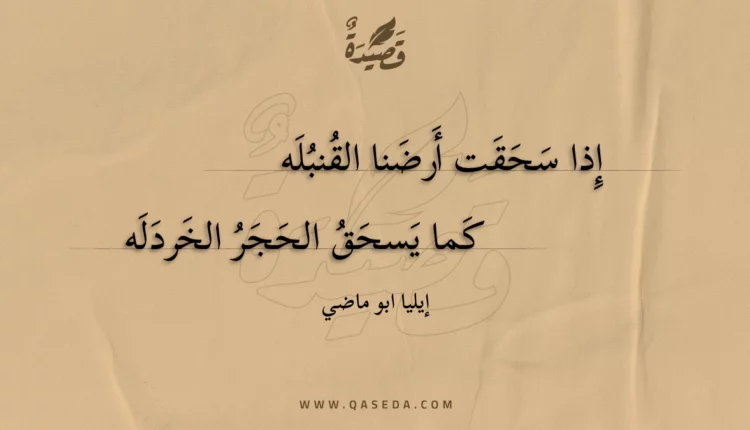 قَصِيْدَةٌ
إِذا سَحَقَت أَرضَنا القُنبُلَه
كَما يَسحَقُ الحَجَرُ الخَردَلَه
إيليا ابو ماضي
WWW.QASEDA.COM